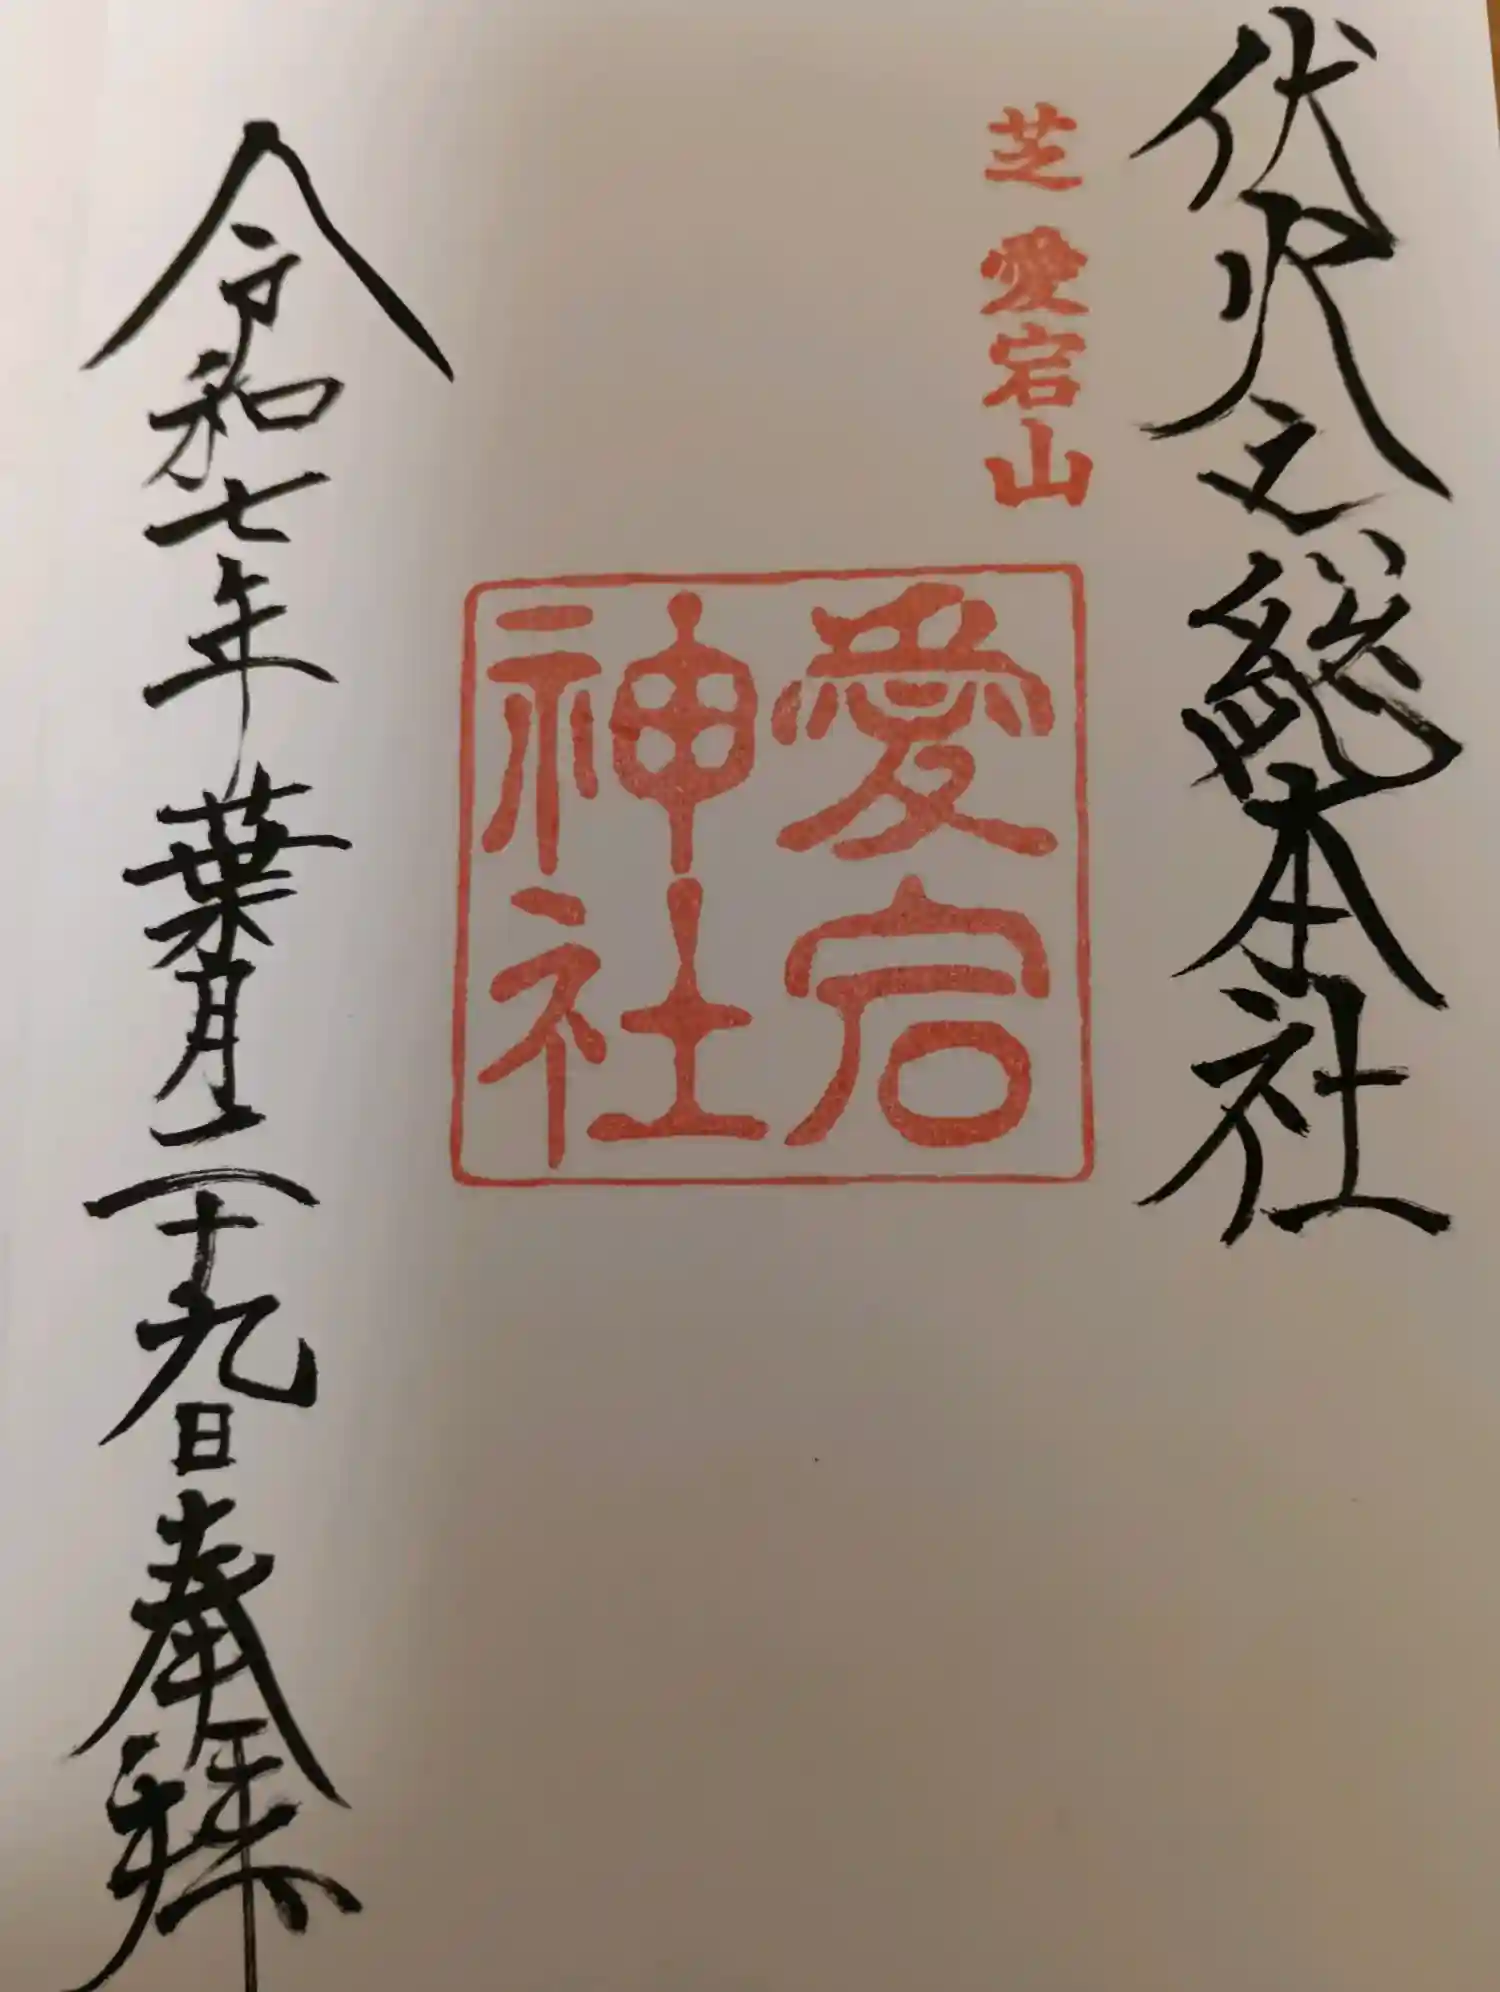 伏火之総本社
芝 愛宕山
愛宕
神社
令和七年葉月二十九日奉拝